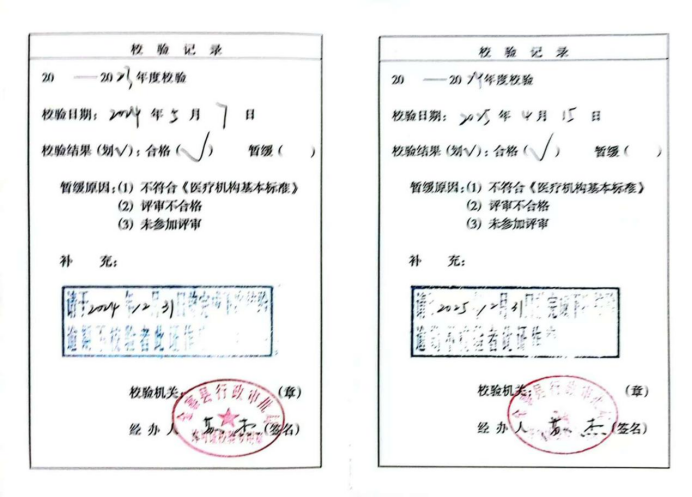 校验记录
20 —2023年度校验
校验日期：2024 年 5 月 7 日
校验结果（划√）：合格（√） 暂缓（ ）
暂缓原因：(1) 不符合《医疗机构基本标准》
(2) 评审不合格
(3) 未参加评审
补 充：
请于2024年12月31日前完成下次校验
逾期不校验者此证作
校验机关： （章）
县行政审批局
经 办 人 苏杰 （签名）
校验记录
20 —2024年度校验
校验日期：2025 年 4 月 15 日
校验结果（划√）：合格（√） 暂缓（ ）
暂缓原因：(1) 不符合《医疗机构基本标准》
(2) 评审不合格
(3) 未参加评审
补 充：
请 2025.12月31日 完成下 校验
逾期不校验者此证作
校验机关： （章）
县行政审批局
经 办 人 苏杰 （签名）